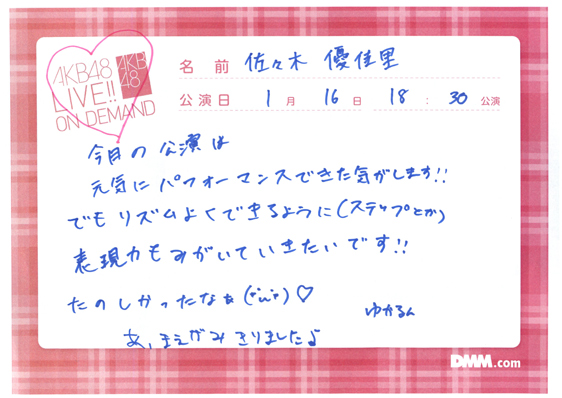 AKB48
LIVE!!
ON DEMAND
AKB
48
名前 佐々木 優佳里
公演日 1月 16日 18:30 公演
今日の公演は
元気にパフォーマンスできた気がします!!
でもリズムよくできるように(ステップとか)
表現力もみがいていきたいです!!
たのしかったなぁ(*ˊᵕˋ*)♡
ゆかるん
あ、まえがみきりましたよ
DMM.com